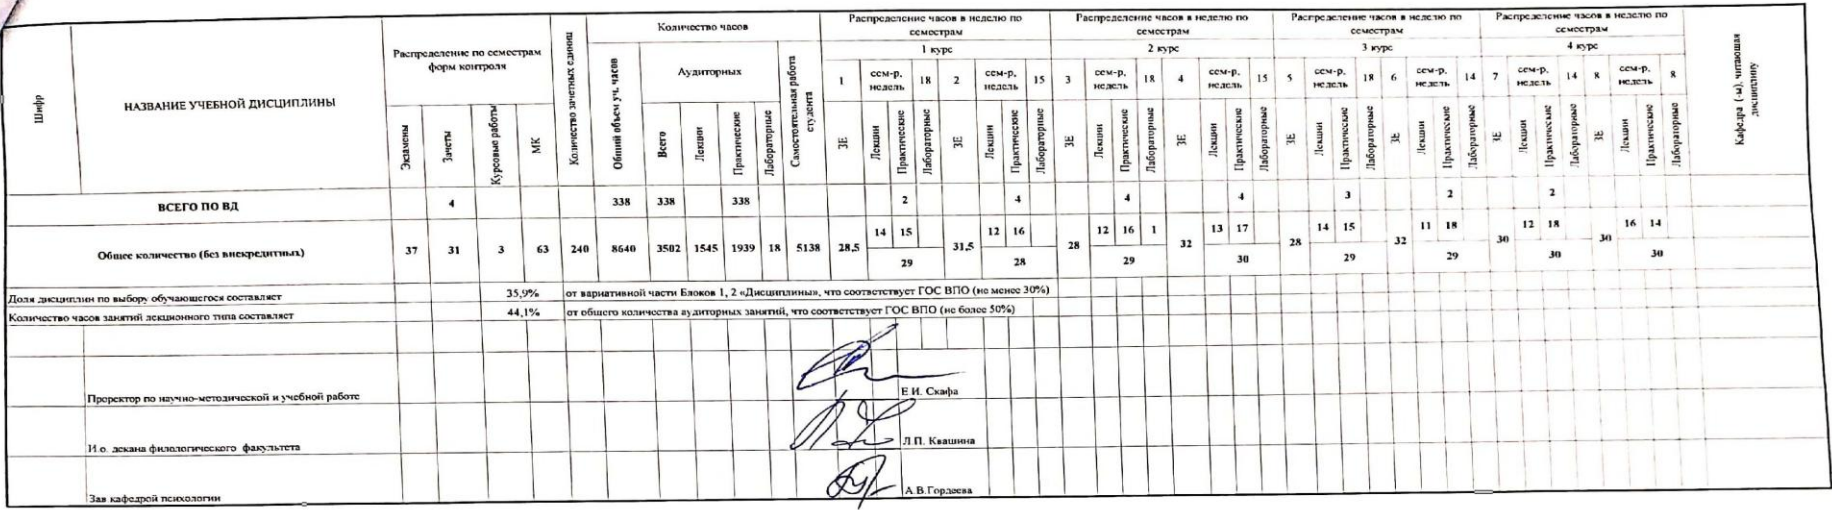 Шифр
НАЗВАНИЕ УЧЕБНОЙ ДИСЦИПЛИНЫ
Распределение по семестрам форм контроля
Экзамены Зачеты Курсовые работы МК
Количество зачетных единиц
Количество часов
Общий объем уч. часов
Аудиторных
Всего Лекции Практические Лабораторные
Самостоятельная работа студента
Распределение часов в неделю по семестрам
1 курс
1 сем-р, недель 18 2 сем-р, недель 15
ЗЕ Лекции Практические Лабораторные ЗЕ Лекции Практические Лабораторные
Распределение часов в неделю по семестрам
2 курс
3 сем-р, недель 18 4 сем-р, недель 15
ЗЕ Лекции Практические Лабораторные ЗЕ Лекции Практические Лабораторные
Распределение часов в неделю по семестрам
3 курс
5 сем-р, недель 18 6 сем-р, недель 14
ЗЕ Лекции Практические Лабораторные ЗЕ Лекции Практические Лабораторные
Распределение часов в неделю по семестрам
4 курс
7 сем-р, недель 14 8 сем-р, недель 8
ЗЕ Лекции Практические Лабораторные ЗЕ Лекции Практические Лабораторные
Кафедра (-ы), читающая дисциплину
ВСЕГО ПО ВД 4 338 338 338 2 4 4 4 3 2 2
14 15 12 16 12 16 1 13 17 14 15 11 18 12 18 16 14
Общее количество (без внекредитных) 37 31 3 63 240 8640 3502 1545 1939 18 5138 28,5 31,5 28 32 28 32 30 30
29 28 29 30 29 29 30 30
Доля дисциплин по выбору обучающегося составляет 35,9% от вариативной части Блоков 1, 2 «Дисциплины», что соответствует ГОС ВПО (не менее 30%)
Количество часов занятий лекционного типа составляет 44,1% от общего количества аудиторных занятий, что соответствует ГОС ВПО (не более 50%)
Проректор по научно-методической и учебной работе Е.И. Скафа
И.о. декана филологического факультета Л.П. Квашина
Зав кафедрой психологии А.В.Гордеева